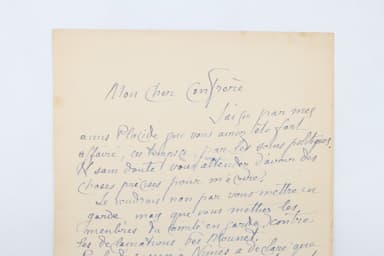 Mon Cher Confrère
J'ai su par mes
amis Placide que vous aviez été fort
affairé, ces temps ci par les soins politiques.
& sans doute vous attendez d'avoir des
choses précises pour m'écrire!
Je voudrais non pas vous mettre en
garde, mais que vous mettiez les
membres du comité en garde contre
les déclamations des Mounet.
Nîmes a déclaré que